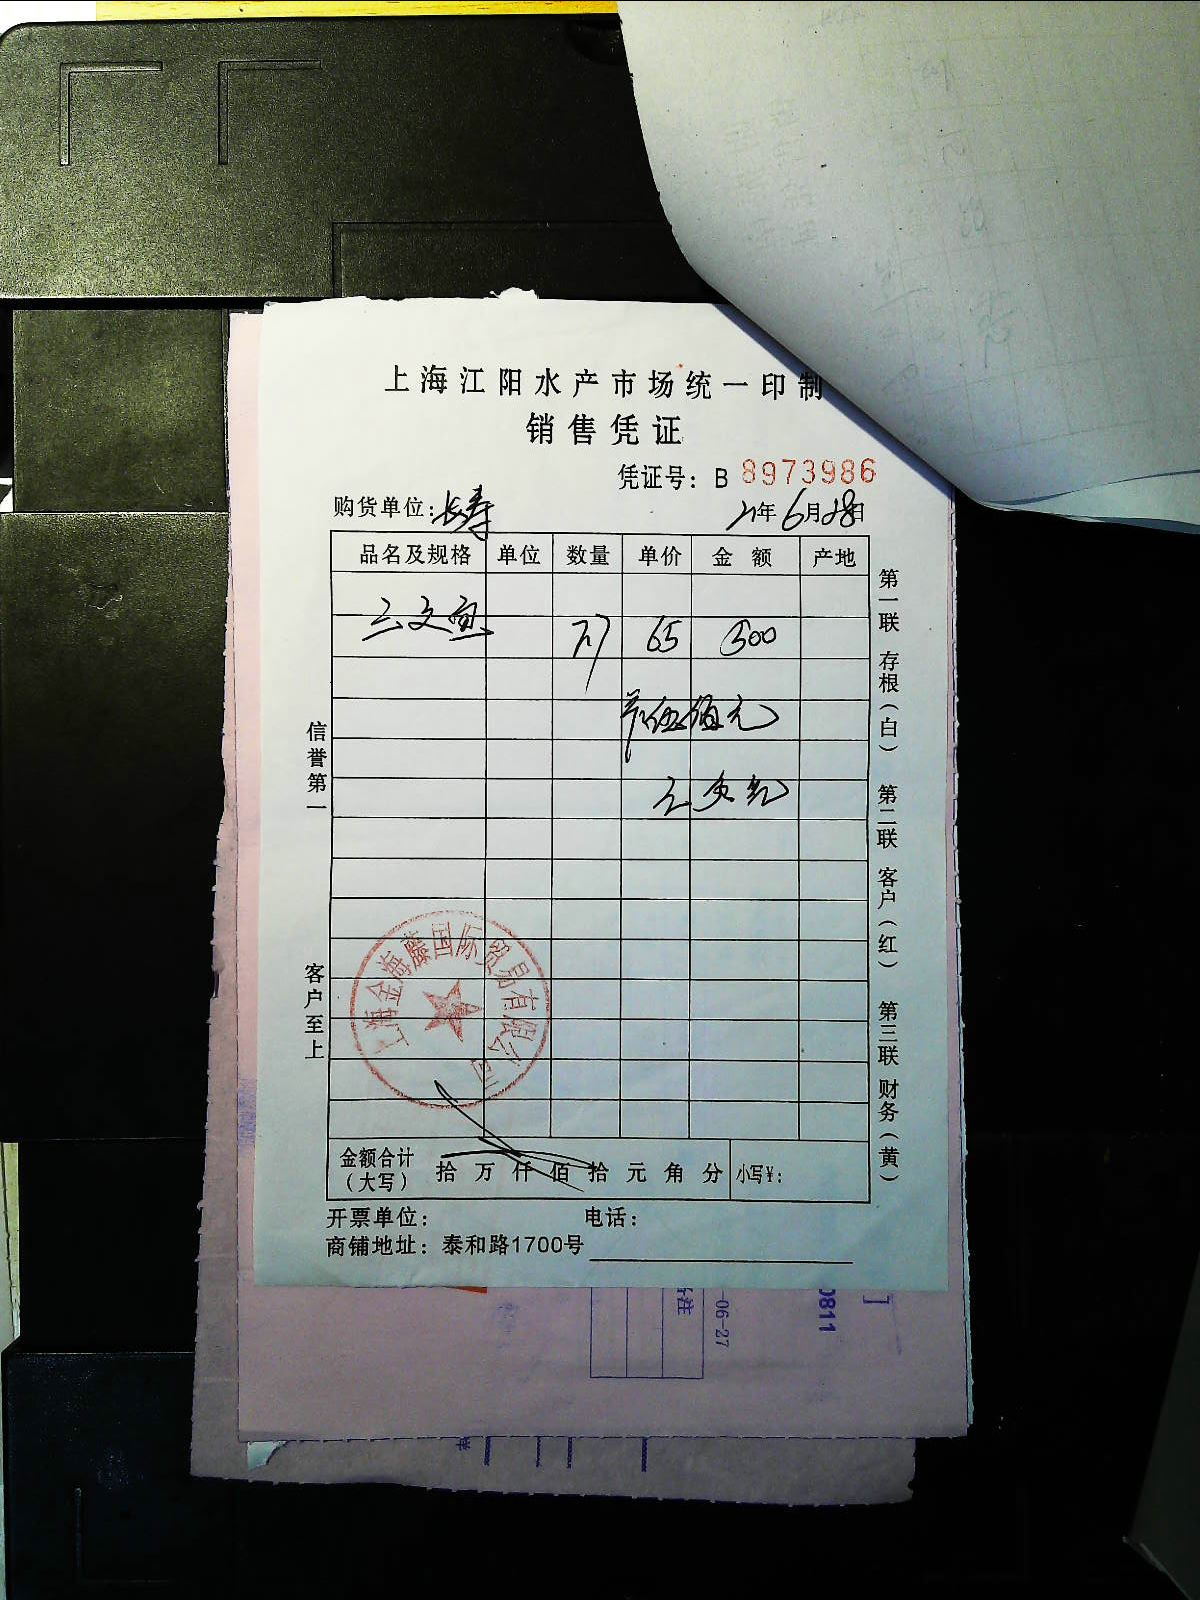 上海江阳水产市场统一印制
销售凭证
凭证号：B 8973986
购货单位：长寿 21年6月28日
品名及规格 单位 数量 单价 金额 产地
三文鱼 65 500
伍佰元
信誉第一
客户至上
第一联 存根（白） 第二联 客户（红） 第三联 财务（黄）
上海金海藤国际贸易有限公司
金额合计（大写） 拾万仟佰拾元角分 小写¥：
开票单位： 电话：
商铺地址：泰和路1700号
-06-27
0811